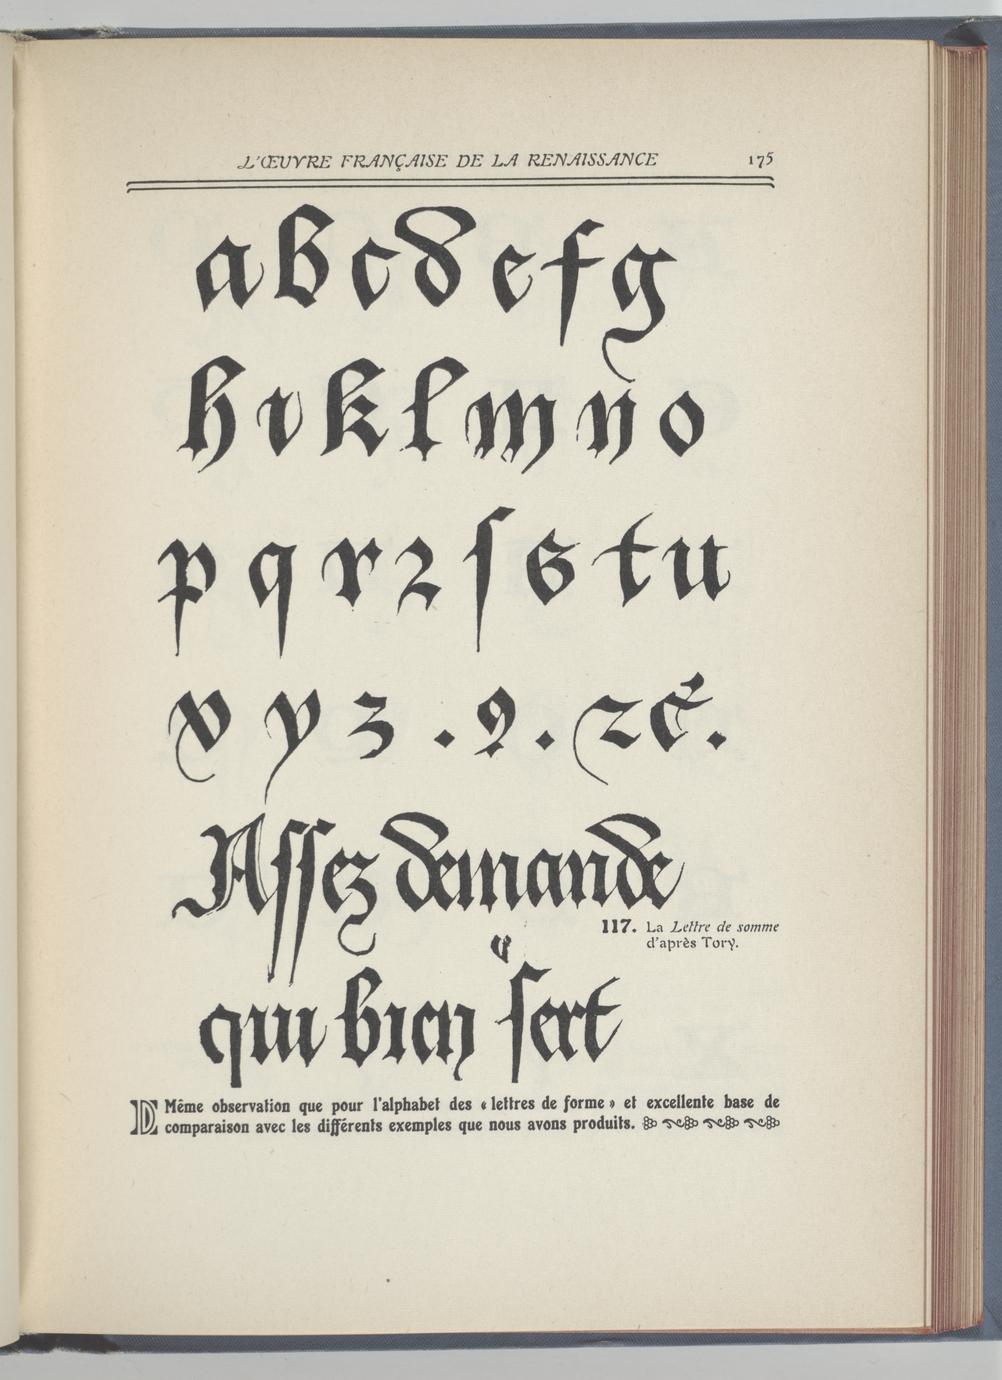 L'ŒUVRE FRANÇAISE DE LA RENAISSANCE 175
a b c d e f g
h ı k l m n o
p q r ꝛ ſ s t u
v y z . 9 . ⁊ c̃ .
Aſſez demande
117. La Lettre de somme
d'après Tory.
qui bien ſert
D Même observation que pour l'alphabet des « lettres de forme » et excellente base de
comparaison avec les différents exemples que nous avons produits.